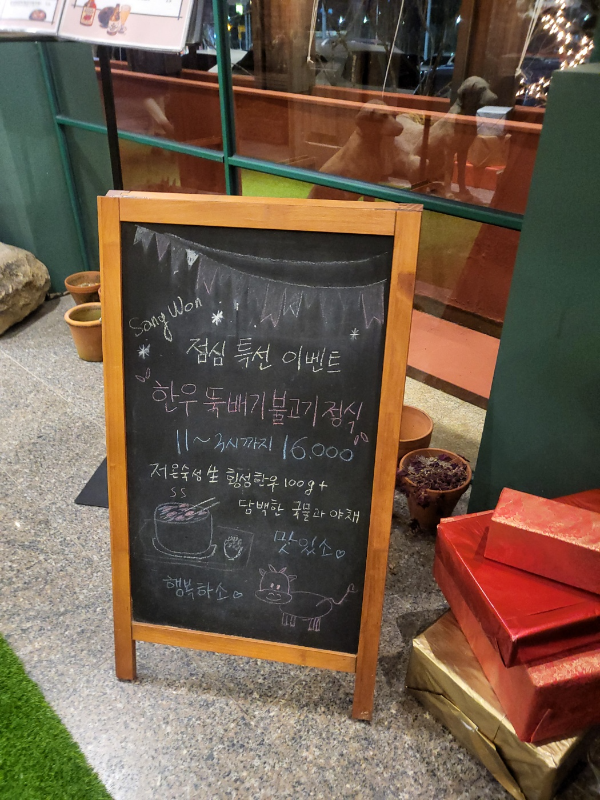 Sang Won
점심 특선 이벤트
한우 뚝배기불고기 정식
11~3시까지 16,000
저온숙성 生 횡성한우 100g+
담백한 국물과 야채
SS
맛있소♡
행복하소♡